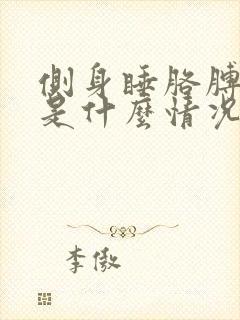 側身睡胳膊
是什麼情況
李傲